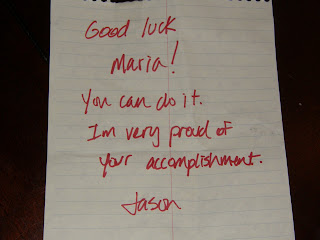 Good luck
Maria!
You can do it.
I'm very proud of
your accomplishment.
Jason